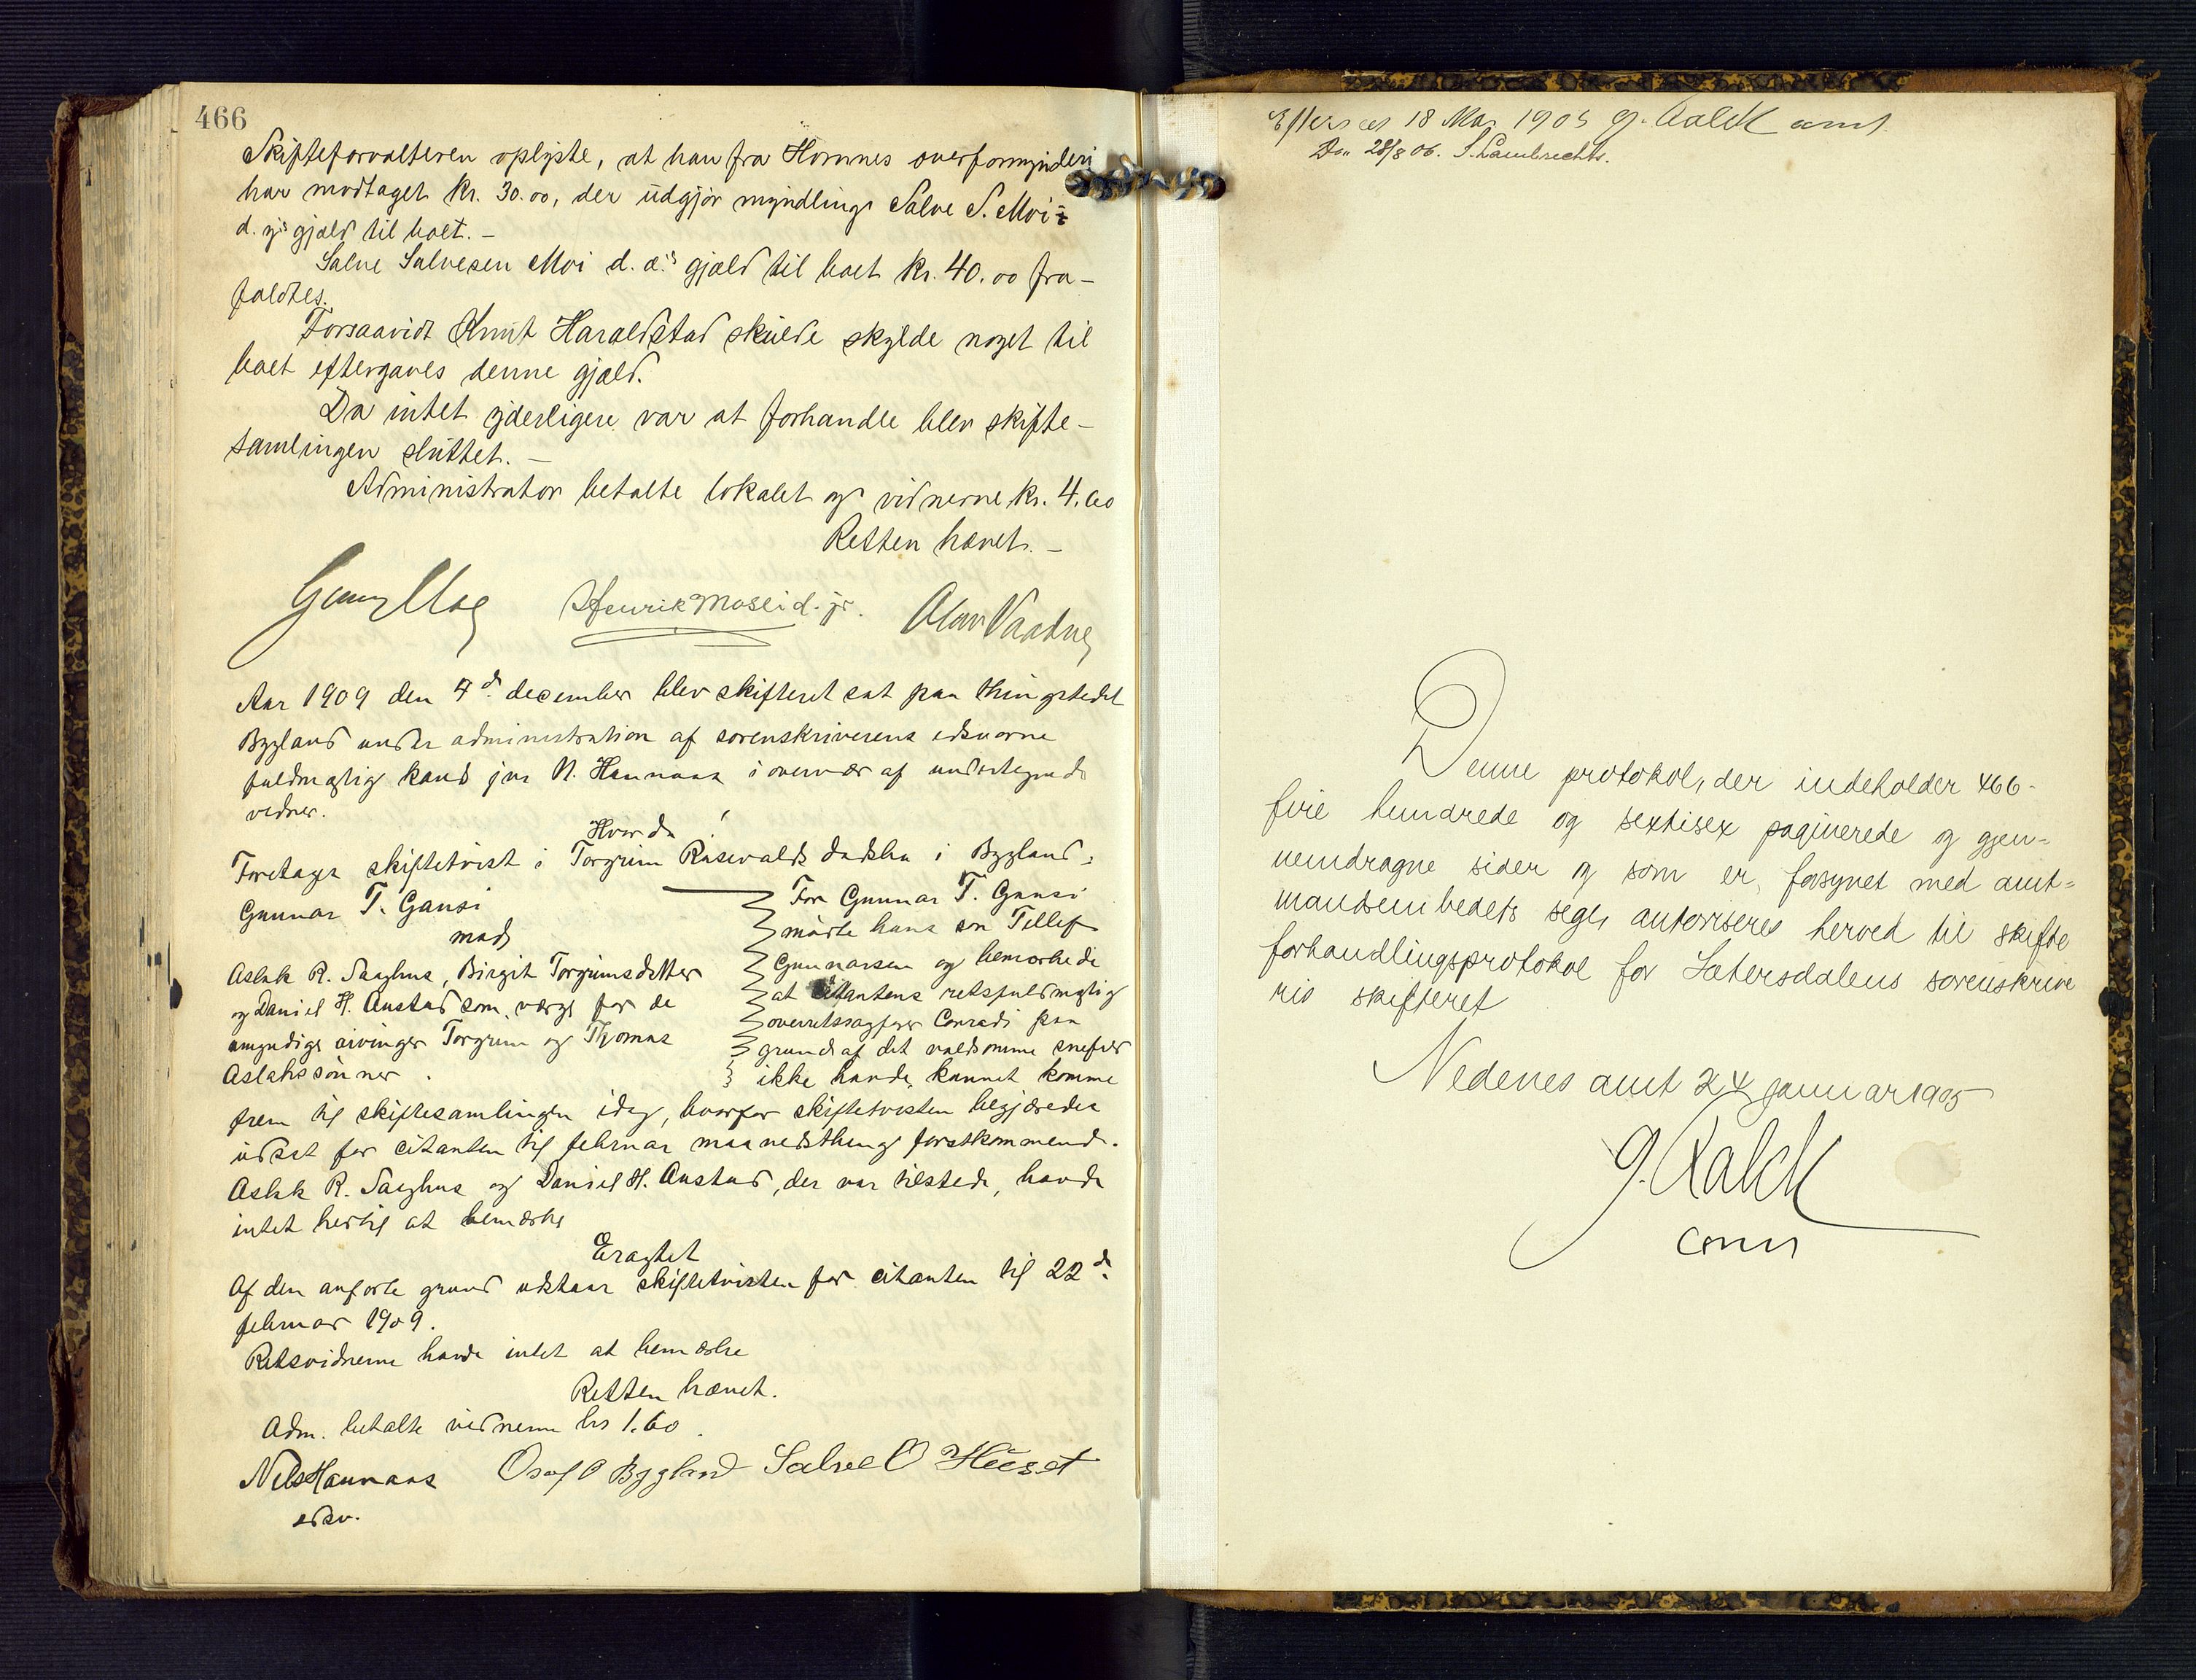 466
Skifteforvalteren oplyste, at han fra Hornnes overformynderi
har modtaget kr. 30.00, der udgjør myndling Salve S. Moi
d. y's gjæld til boet. –
Salve Salvesen Moi d. æ's gjæld til boet kr. 40.00 fra-
faldtes.
Forsaavidt Knut Haraldstad skulde skylde noget til
boet eftergaves denne gjæld.
Da intet yderligere var at forhandle blev skifte-
samlingen sluttet. –
Administrator betalte lokalet og vidnerne kr. 4.60
Retten hævet. –
Henrik Moseid. jr. Olav Vaadne
Aar 1909 den 7d december blev skifteret sat paa thingstedet
Bygland under administration af sorenskriverens edsvorne
fuldmægtig kand jur N. Hannaas i overvær af undertegnede
vidner.
Hvorda!
Foretages skiftetvist i Torgrim Rusvalds dødsbo i Bygland:
Gunnar T. Gansi
mod
Aslak R. Saghus, Birgit Torgrimsdatter
og Daniel H. Austad som værge for de
umyndige arvinger Torgrim og Thomas
Aslakssønner.
For Gunnar T. Gansi
mødte hans søn Tellef
Gunnarsen og bemerkede
at citantens retsfuldmægtig
overretssagfører Conradi paa
grund af det voldsomme snefald
ikke havde kunnet komme
frem til skiftesamlingen idag, hvorfor skiftetvisten begjæredes
udsat for citanten til februar maanedsthing førstkommende.
Aslak R. Saghus og Daniel H. Austad, der var tilstede, havde
intet hertil at bemærke
Eragtet
Af den anførte grund udstaar skiftetvisten for citanten til 22d
februar 1909.
Retsvidnerne havde intet at bemærke
Retten hævet.
Adm. betalte vidnerne krs 1.60.
Nils Hannaas Osuf O Bygland Salve O Heeset
edsv.
Efterseet 18 Mai 1905 G. Kalck amt.
Do. 28/8 06. S. Lambrechts.
Denne protokol, der indeholder 466-
fire hundrede og sextisex paginerede og gjen-
nemdragne sider og som er forsynet med amt-
mandsembedets segl, autoriseres herved til skifte
forhandlingsprotokol for Sætersdalens sorenskrive
ris skifteret
Nedenes amt 24 januar 1905
G. Kalck
const